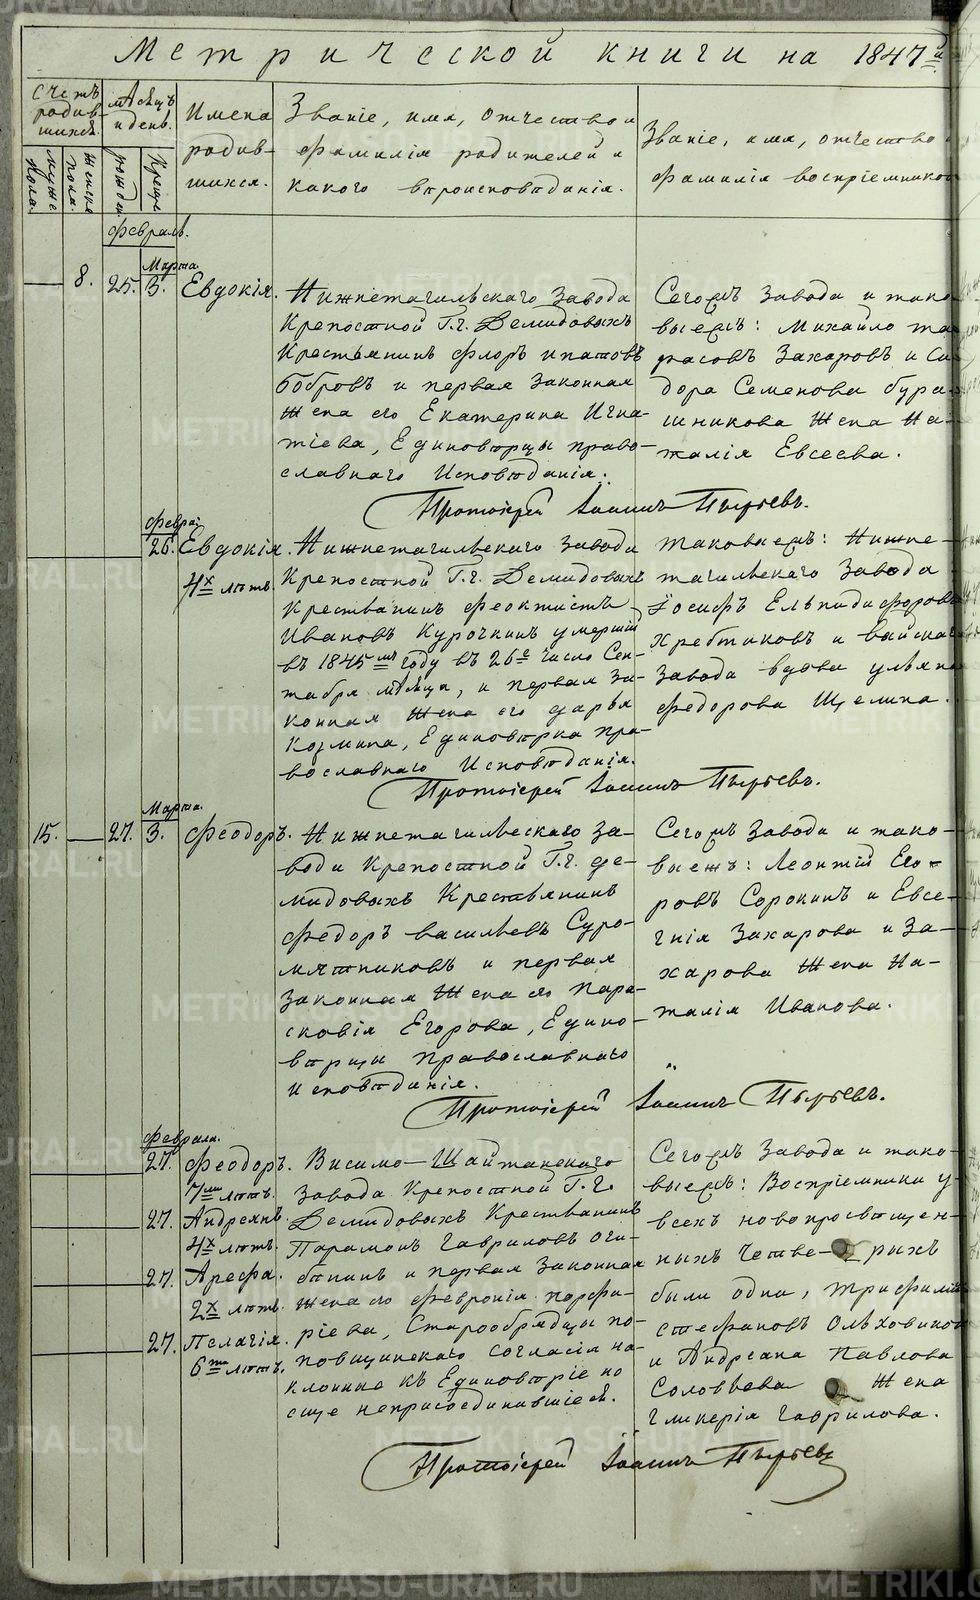 Метрической книги на 1847й
Счетъ родив- шихся.
мѣсяцъ и день.
Имена родив- шихся.
Званіе, имя, отчество и фамилія родителей и какого вѣроисповѣданія.
Званіе, имя, отчество и фамилія воспріемников
мужска пола.
женска пола.
рожден
Крещ
Февраль.
Марта
8. 25. 3. Евдокія.
Нижнетагильскаго Завода
Крепостной Г.г. Демидовыхъ
Крестьянинъ Флоръ ипатовъ
Бобровъ и первая Законная
Жена его Екатерина Игна-
тіева, Единовѣрцы право-
славнаго Исповѣданія.
Сегожъ Завода и тако-
выежъ: Михайло та-
расовъ Захаровъ и Си-
дора Семенова бура-
шникова Жена На-
талія Евсеева.
Протоіерей Іоаннъ Пырьевъ.
Феврал
26. Евдокія.
4х лѣтъ.
Нижнетагильскаго Завода
Крепостной Г.г. Демидовыхъ
Крестьянинъ Феоктистъ
Ивановъ Курочкинъ умершій
въ 1845мъ году въ 26е число Сен-
тября мѣсяца, и первая за-
конная Жена его дарья
Козмина, Единовѣрка пра-
вославнаго Исповѣданія.
таковыежъ: Нижне-
тагильскаго Завода
Іосифъ Ельпидифоровъ
Хребтиковъ и
Завода вдова ульяна
Федорова Щелина.
Протоіерей Іоаннъ Пырьевъ.
Марта.
15. 27. 3. Феодоръ.
Нижнетагильскаго За-
вода Крепостной Г.г. Де-
мидовыхъ Крестьянинъ
Федоръ васильевъ Суро-
мятниковъ и первая
Законная Жена его Пара-
сковія Егорова, Едино-
вѣрцы Православнаго
исповѣданія.
Сегожъ Завода и тако-
выежъ: Леонтій Его-
ровъ Сорокинъ и Евсе-
гнія Захарова и За-
харова Жена На-
талія Иванова.
Протоіерей Іоаннъ Пырьевъ.
Февраля.
27. Феодоръ.
7ми лѣтъ.
27. Андреянъ.
4х лѣтъ.
27. Арефа.
2х лѣтъ.
27. Пелагія.
6ти лѣтъ.
Висимо-Шайтанскаго
Завода Крепостной Г.г.
Демидовыхъ Крестьянинъ
Парамонъ Гавриловъ
и первая Законная
жена его Феѵронія парфе-
ріева, Старообрядцы по-
повщинскаго согласія на-
клонные къ Единовѣрію но
еще неприсоединившіеся.
Сегожъ Завода и тако-
выежъ: Воспріемники у
всехъ новопросвещен-
ныхъ Четве-рыхъ
были одни, Трифилій
стефановъ Ольховиковъ
и Андреяна Павлова
Соловьева Жена
Гликерія Гаврилова.
Протоіерей Іоаннъ Пырьевъ
METRIKI.GASO-URAL.RU